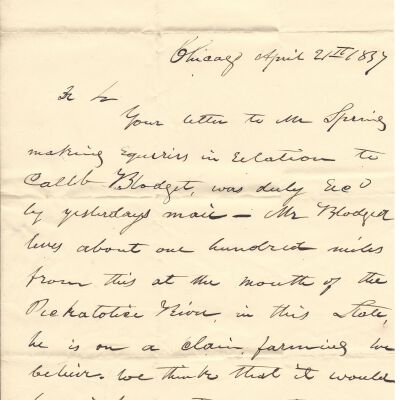 Chicago April 21st 1837
Dr Sr
Your letter to Mr Spring
making Equiriss in relation to
Callb Blodget, was duly Recd
by yesterdays mail - Mr Blodget
lives about one hundred miles
from this at the mouth of the
Peckatolice River, in this State,
he is on a claim, farming we
believe. We think that it would